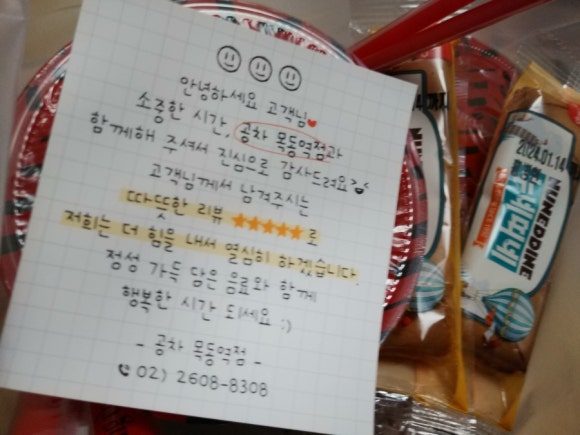 안녕하세요 고객님
소중한 시간, 공차 목동역점과
함께해 주셔서 진심으로 감사드려요
고객님께서 남겨주시는
따뜻한 리뷰 ★★★★★로
저희는 더 힘을 내서 열심히 하겠습니다.
정성 가득 담은 음료와 함께
행복한 시간 되세요 :)
- 공차 목동역점 -
02) 2608-8308
2024.01.14
MUNEDDINE